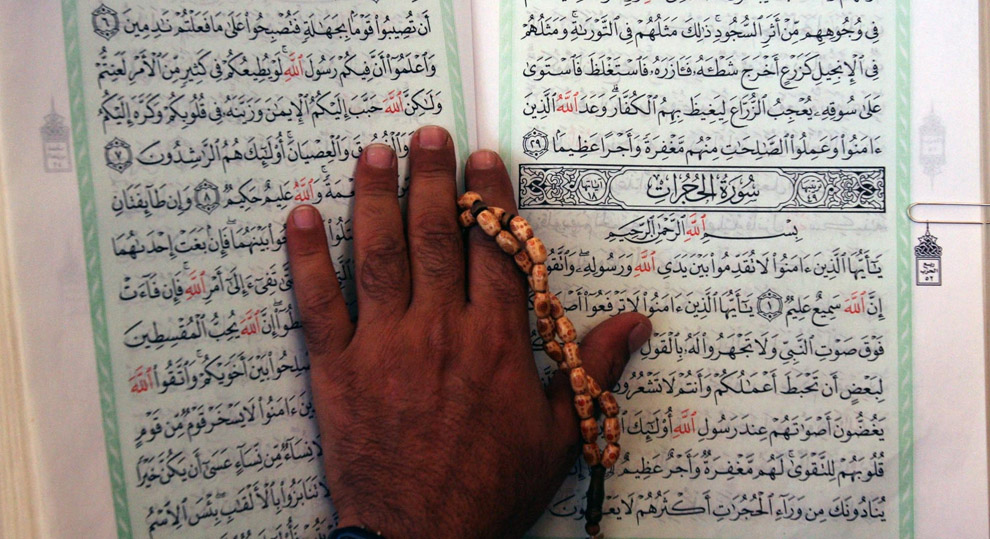 فِي وُجُوهِهِم مِّنْ أَثَرِ ٱلسُّجُودِ ۚ ذَٰلِكَ مَثَلُهُمْ فِي ٱلتَّوْرَىٰةِ ۚ وَمَثَلُهُمْ
فِي ٱلْإِنجِيلِ كَزَرْعٍ أَخْرَجَ شَطْـَٔهُۥ فَـَٔازَرَهُۥ فَٱسْتَغْلَظَ فَٱسْتَوَىٰ
عَلَىٰ سُوقِهِۦ يُعْجِبُ ٱلزُّرَّاعَ لِيَغِيظَ بِهِمُ ٱلْكُفَّارَ ۗ وَعَدَ ٱللَّهُ ٱلَّذِينَ
ءَامَنُوا۟ وَعَمِلُوا۟ ٱلصَّـٰلِحَـٰتِ مِنْهُم مَّغْفِرَةً وَأَجْرًا عَظِيمًۢا ٢٩
ترتيبها ٤٩ سُورَةُ الحُجُرَاتِ آياتها ١٨
بِسْمِ ٱللَّهِ ٱلرَّحْمَـٰنِ ٱلرَّحِيمِ
يَـٰٓأَيُّهَا ٱلَّذِينَ ءَامَنُوا۟ لَا تُقَدِّمُوا۟ بَيْنَ يَدَيِ ٱللَّهِ وَرَسُولِهِۦ ۖ وَٱتَّقُوا۟
إِنَّ ٱللَّهَ سَمِيعٌ عَلِيمٌ ١ يَـٰٓأَيُّهَا ٱلَّذِينَ ءَامَنُوا۟ لَا تَرْفَعُوٓا۟
فَوْقَ صَوْتِ ٱلنَّبِيِّ وَلَا تَجْهَرُوا۟ لَهُۥ بِٱلْقَوْلِ
لِبَعْضٍ أَن تَحْبَطَ أَعْمَـٰلُكُمْ وَأَنتُمْ لَا تَشْعُرُونَ
يَغُضُّونَ أَصْوَٰتَهُمْ عِندَ رَسُولِ ٱللَّهِ أُو۟لَـٰٓئِكَ
قُلُوبَهُمْ لِلتَّقْوَىٰ ۚ لَهُم مَّغْفِرَةٌ وَأَجْرٌ عَظِيمٌ
يُنَادُونَكَ مِن وَرَآءِ ٱلْحُجُرَٰتِ أَكْثَرُهُمْ لَا
أَن تُصِيبُوا۟ قَوْمًۢا بِجَهَـٰلَةٍ فَتُصْبِحُوا۟ عَلَىٰ مَا فَعَلْتُمْ نَـٰدِمِينَ ٦
وَٱعْلَمُوٓا۟ أَنَّ فِيكُمْ رَسُولَ ٱللَّهِ ۚ لَوْ يُطِيعُكُمْ فِي كَثِيرٍ مِّنَ ٱلْأَمْرِ لَعَنِتُّمْ
وَلَـٰكِنَّ ٱللَّهَ حَبَّبَ إِلَيْكُمُ ٱلْإِيمَـٰنَ وَزَيَّنَهُۥ فِي قُلُوبِكُمْ وَكَرَّهَ إِلَيْكُمُ
وَٱلْعِصْيَانَ ۚ أُو۟لَـٰٓئِكَ هُمُ ٱلرَّٰشِدُونَ ٧
وَٱللَّهُ عَلِيمٌ حَكِيمٌ ٨ وَإِن طَآئِفَتَانِ
بَيْنَهُمَا ۖ فَإِنۢ بَغَتْ إِحْدَىٰهُمَا
تَفِيٓءَ إِلَىٰٓ أَمْرِ ٱللَّهِ ۚ فَإِن فَآءَتْ
إِنَّ ٱللَّهَ يُحِبُّ ٱلْمُقْسِطِينَ
بَيْنَ أَخَوَيْكُمْ ۚ وَٱتَّقُوا۟ ٱللَّهَ
ءَامَنُوا۟ لَا يَسْخَرْ قَوْمٌ مِّن قَوْمٍ
نِسَآءٌ مِّن نِّسَآءٍ عَسَىٰٓ أَن يَكُنَّ خَيْرًا
تَنَابَزُوا۟ بِٱلْأَلْقَـٰبِ ۖ بِئْسَ ٱلِٱسْمُ